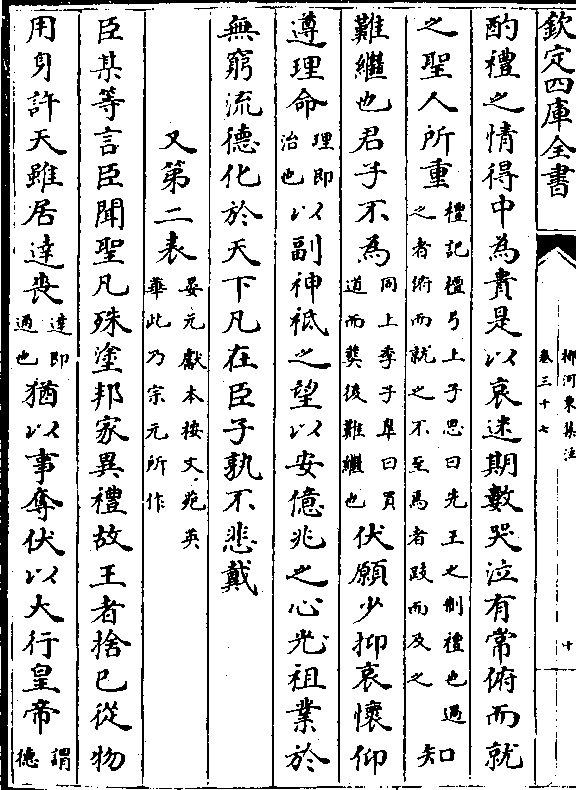 欽定四庫全書
柳河東集注
卷三十七
十
酌禮之情得中為貴是以哀迷期數哭泣有常俯而就
之聖人所重禮記檀弓上子思曰先王之制禮也過之者俯而就之不至焉者跂而及之知
難繼也君子不為同上季子臯曰買道而葬後難繼也伏願少抑哀懷仰
遵理命理即治也以副神祗之望以安億兆之心光祖業於
無窮流德化於天下凡在臣子孰不悲戴
又第二表晏元獻本按文苑英華此乃宗元所作
臣某等言臣聞聖凡殊塗邦家異禮故王者捨己從物
用身許天雖居達喪達即通也猶以事奪伏以大行皇帝謂德